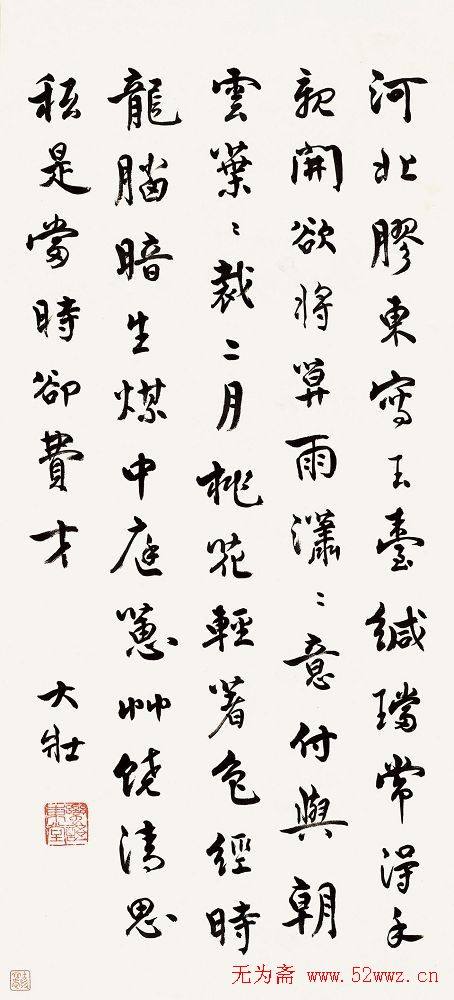 河北膠東寫玉臺緘璫常得手
親開欲將雨瀟〻意付與朝
雲葉〻裁二月桃花輕著色經時
龍腦暗生煤中庭蕙艸饒清思
秖是當時卻費才
大壯
无为斋 www.52wwz.cn